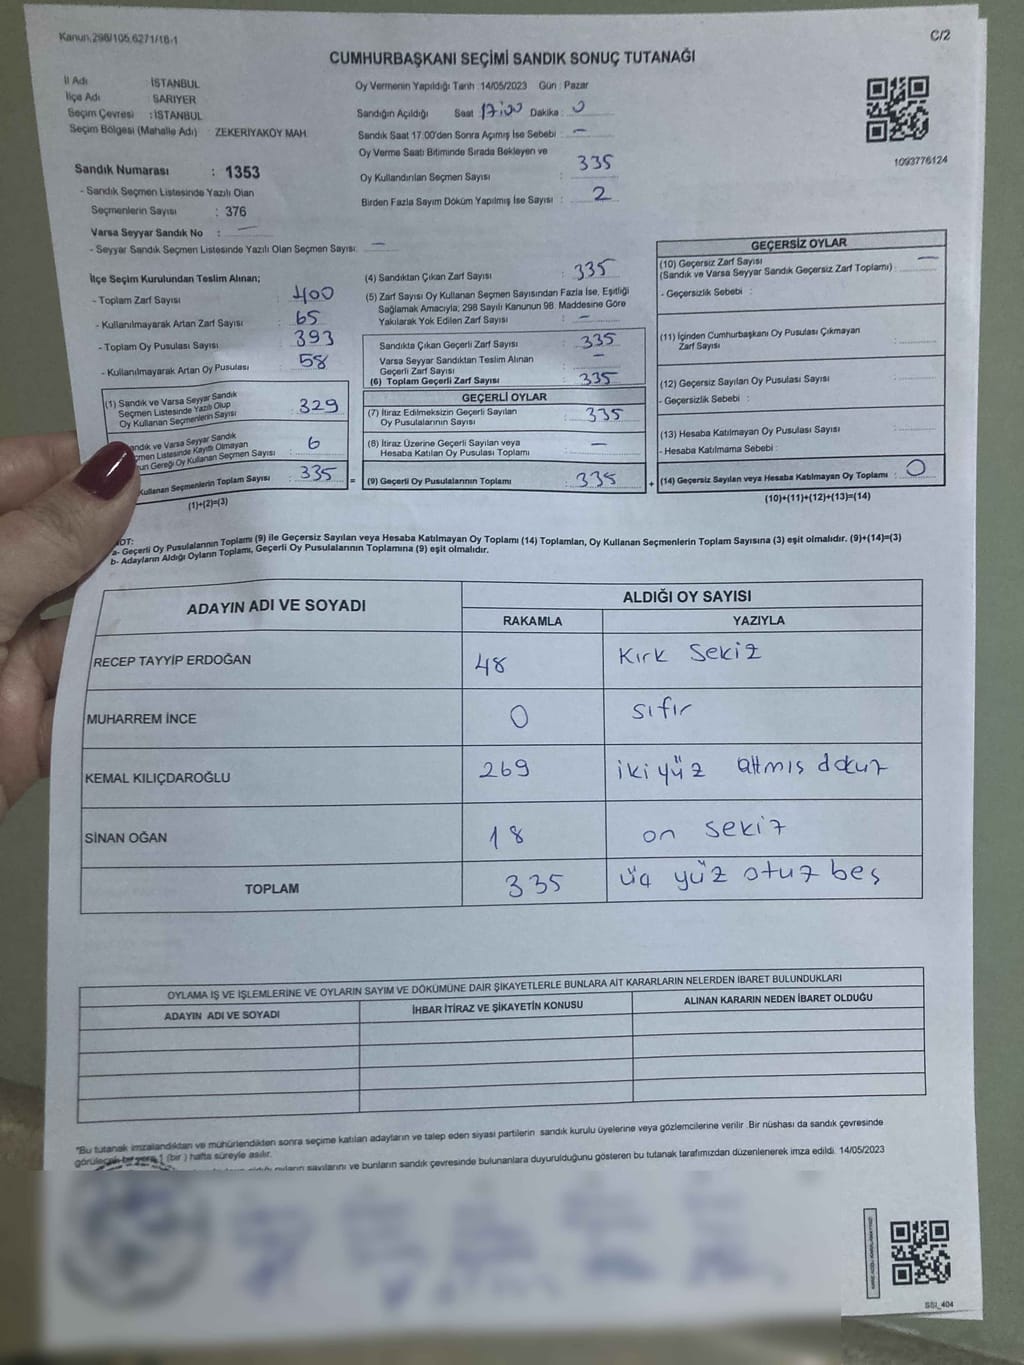 Kanun,298/105,6271/16-1
C/2
CUMHURBAŞKANI SEÇİMİ SANDIK SONUÇ TUTANAĞI
İl Adı İSTANBUL
İlçe Adı SARIYER
Seçim Çevresi : İSTANBUL
Seçim Bölgesi (Mahalle Adı) ZEKERİYAKÖY MAH.
Sandık Numarası : 1353
- Sandık Seçmen Listesinde Yazılı Olan
Seçmenlerin Sayısı : 376
Varsa Seyyar Sandık No : —
- Seyyar Sandık Seçmen Listesinde Yazılı Olan Seçmen Sayısı: —
Oy Vermenin Yapıldığı Tarih :14/05/2023 Gün : Pazar
Sandığın Açıldığı Saat : 17:00 Dakika : 0
Sandık Saat 17.00'den Sonra Açımış İse Sebebi : —
Oy Verme Saati Bitiminde Sırada Bekleyen ve
Oy Kullandırılan Seçmen Sayısı : 335
Birden Fazla Sayım Döküm Yapılmış İse Sayısı : 2
1093776124
İlçe Seçim Kurulundan Teslim Alınan;
- Toplam Zarf Sayısı : 400
- Kullanılmayarak Artan Zarf Sayısı : 65
- Toplam Oy Pusulası Sayısı : 393
- Kullanılmayarak Artan Oy Pusulası : 58
(1) Sandık ve Varsa Seyyar Sandık
Seçmen Listesinde Yazılı Olup
Oy Kullanan Seçmenlerin Sayısı : 329
andık ve Varsa Seyyar Sandık
çmen Listesinde Kayıtlı Olmayan
un Gereği Oy Kullanan Seçmen Sayısı : 6
Kullanan Seçmenlerin Toplam Sayısı : 335 =
(1)+(2)=(3)
(4) Sandıktan Çıkan Zarf Sayısı : 335
(5) Zarf Sayısı Oy Kullanan Seçmen Sayısından Fazla İse, Eşitliği
Sağlamak Amacıyla; 298 Sayılı Kanunun 98. Maddesine Göre
Yakılarak Yok Edilen Zarf Sayısı : —
Sandıkta Çıkan Geçerli Zarf Sayısı : 335
Varsa Seyyar Sandıktan Teslim Alınan
Geçerli Zarf Sayısı : —
(6) Toplam Geçerli Zarf Sayısı : 335
GEÇERLİ OYLAR
(7) İtiraz Edilmeksizin Geçerli Sayılan
Oy Pusulalarının Sayısı : 335
(8) İtiraz Üzerine Geçerli Sayılan veya
Hesaba Katılan Oy Pusulası Toplamı : —
(9) Geçerli Oy Pusulalarının Toplamı : 335 +
GEÇERSİZ OYLAR
(10) Geçersiz Zarf Sayısı
(Sandık ve Varsa Seyyar Sandık Geçersiz Zarf Toplamı) : —
- Geçersizlik Sebebi :
(11) İçinden Cumhurbaşkanı Oy Pusulası Çıkmayan
Zarf Sayısı :
(12) Geçersiz Sayılan Oy Pusulası Sayısı :
- Geçersizlik Sebebi :
(13) Hesaba Katılmayan Oy Pusulası Sayısı :
- Hesaba Katılmama Sebebi :
(14) Geçersiz Sayılan veya Hesaba Katılmayan Oy Toplamı : 0
(10)+(11)+(12)+(13)=(14)
OT:
a- Geçerli Oy Pusulalarının Toplamı (9) ile Geçersiz Sayılan veya Hesaba Katılmayan Oy Toplamı (14) Toplamları, Oy Kullanan Seçmenlerin Toplam Sayısına (3) eşit olmalıdır. (9)+(14)=(3)
b- Adayların Aldığı Oyların Toplamı, Geçerli Oy Pusulalarının Toplamına (9) eşit olmalıdır.
ADAYIN ADI VE SOYADI
ALDIĞI OY SAYISI
RAKAMLA YAZIYLA
RECEP TAYYİP ERDOĞAN 48 Kırk Sekiz
MUHARREM İNCE 0 sıfır
KEMAL KILIÇDAROĞLU 269 iki yüz altmıs dokuz
SİNAN OĞAN 18 on sekiz
TOPLAM 335 üç yüz otuz beş
OYLAMA İŞ VE İŞLEMLERİNE VE OYLARIN SAYIM VE DÖKÜMÜNE DAİR ŞİKAYETLERLE BUNLARA AİT KARARLARIN NELERDEN İBARET BULUNDUKLARI
ADAYIN ADI VE SOYADI İHBAR İTİRAZ VE ŞİKAYETİN KONUSU ALINAN KARARIN NEDEN İBARET OLDUĞU
"Bu tutanak imzalandıktan ve mühürlendikten sonra seçime katılan adayların ve talep eden siyasi partilerin sandık kurulu üyelerine veya gözlemcilerine verilir. Bir nüshası da sandık çevresinde
görülecek bir yere 1 (bir) hafta süreyle asılır.
sayılarını ve bunların sandık çevresinde bulunanlara duyurulduğunu gösteren bu tutanak tarafımızdan düzenlenerek imza edildi. 14/05/2023
SSI_404